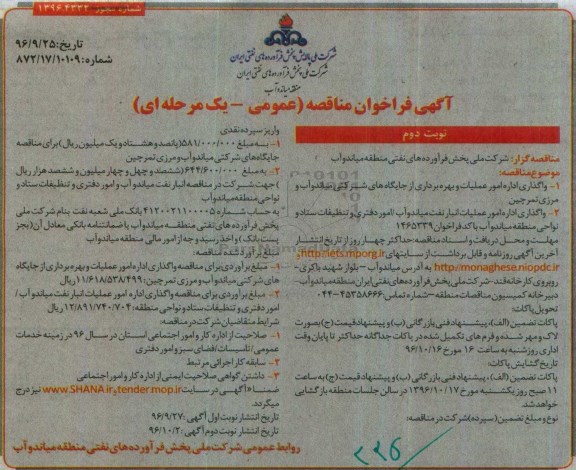 شماره مجوز: ۱۳۹۶.۴۳۳۲
تاریخ: ۹۶/۹/۲۵
شماره: ۸۷۲/۱۷/۱۰۱۰۹
شرکت ملی پالایش و پخش فرآورده‌های نفتی ایران
شرکت ملی پخش فرآورده‌های نفتی ایران
منطقه میاندوآب
آگهی فراخوان مناقصه (عمومی – یک مرحله ای)
نوبت دوم
مناقصه گزار: شرکت ملی پخش فرآورده های نفتی منطقه میاندوآب
موضوع مناقصه:
۱- واگذاری اداره امور عملیات و بهره برداری از جایگاه های شرکتی میاندوآب و
مرزی تمرچین
۲- واگذاری اداره امور عملیات انبار نفت میاندوآب / امور دفتری و تنظیفات ستاد و
نواحی منطقه میاندوآب با کد فراخوان ۱۴۶۵۲۳۹
مهلت و محل دریافت و اسناد مناقصه: حداکثر چهار روز از تاریخ انتشار
آخرین آگهی روزنامه و قابل برداشت از سایتهای http://iets.mporg.ir و
http://monaghese.niopdc.ir به آدرس میاندوآب - بلوار شهید باکری -
روبروی کارخانه قند - شرکت ملی پخش فرآورده های نفتی ایران منطقه میاندوآب -
دبیرخانه کمیسیون مناقصات منطقه - شماره تماس: ۴۵۳۵۸۶۶۶-۰۴۴
تحویل پاکات:
پاکات تضمین (الف)، پیشنهاد فنی بازرگانی (ب) و پیشنهاد قیمت (ج) بصورت
لاک و مهر شده و فرم های تکمیل شده در پاکات جداگانه حداکثر تا پایان وقت
اداری روز شنبه به ساعت ۱۶ مورخ ۹۶/۱۰/۱۶
تاریخ گشایش پاکات:
پاکات تضمین (الف)، پیشنهاد فنی بازرگانی (ب) و پیشنهاد قیمت (ج) به ساعت
۱۱ صبح روز یکشنبه مورخ ۱۳۹۶/۱۰/۱۷ در سالن جلسات منطقه بازگشایی
خواهد شد.
نوع و مبلغ تضمین (سپرده) شرکت در مناقصه:
واریز سپرده نقدی
۱- به مبلغ ۵۸۱/۰۰۰/۰۰۰ (پانصد و هشتاد و یک میلیون ریال) برای مناقصه
جایگاه های شرکتی میاندوآب و مرزی تمرچین
۲- به مبلغ ۶۴۴/۶۰۰/۰۰۰ (ششصد و چهل و چهار میلیون و ششصد هزار ریال
) جهت شرکت در مناقصه انبار نفت میاندوآب و امور دفتری و تنظیفات ستاد و
نواحی منطقه میاندوآب
به حساب شماره ۴۱۲۰۰۲۱۱۰۰۰۵ بانک ملی شعبه نفت بنام شرکت ملی
پخش فرآورده های نفتی منطقه میاندوآب یا ضمانتنامه بانکی معادل آن (بجز
پست بانک) و اخذ رسید وجه از امور مالی منطقه میاندوآب
مبلغ برآورد شده مناقصه:
۱- مبلغ برآوردی برای مناقصه واگذاری اداره امور عملیات و بهره برداری از جایگاه
های شرکتی میاندوآب و مرزی تمرچین: ۱۱/۶۱۸/۵۳۸/۴۹۹ ریال
۲- مبلغ برآوردی برای مناقصه واگذاری اداره امور عملیات انبار نفت میاندوآب /
امور دفتری و تنظیفات ستاد و نواحی منطقه: ۱۲/۸۹۱/۷۴۰/۷۰۴ ریال
شرایط متقاضیان شرکت در مناقصه:
۱- صلاحیت از اداره کار و امور اجتماعی استان در سال ۹۶ در زمینه خدمات
عمومی / تاسیسات / فضای سبز و امور دفتری
۲- سابقه کار اجرائی مرتبط
۳- داشتن گواهی صلاحیت ایمنی از اداره کار و امور اجتماعی
ضمنا آگهی در سایت tender.mop.ir و www.SHANA.ir نیز درج
میگردد.
تاریخ انتشار نوبت اول آگهی: ۹۶/۹/۲۷
تاریخ انتشار نوبت دوم آگهی: ۹۶/۱۰/۲
روابط عمومی شرکت ملی پخش فرآورده های نفتی منطقه میاندوآب